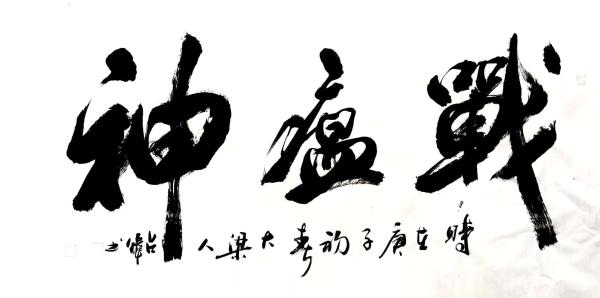 戰瘟神
時在庚子初春大梁人